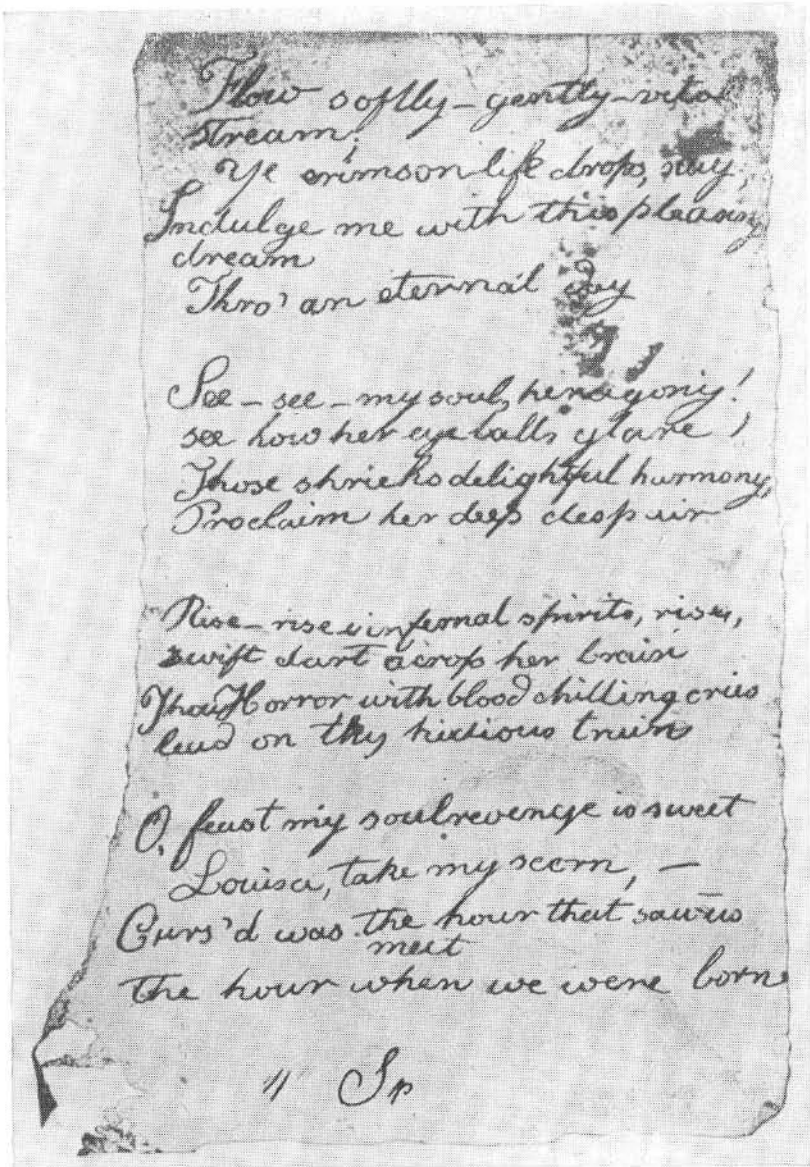 Flow softly – gently – vital
stream;
Ye crimson life drops, stay,
Indulge me with this pleasing
dream
Thro' an eternal day
See – see – my soul, her agony!
see how her eye balls glare!
Those shrieks delightful harmony,
Proclaim her deep despair
Rise – rise infernal spirits, rise,
swift dart across her brain
Thou Horror with blood chilling cries
lead on thy train
O, feast my soul revenge is sweet
Louisa, take my scorn, –
Curs'd was the hour that saw us
meet
the hour when we were born
" Sp